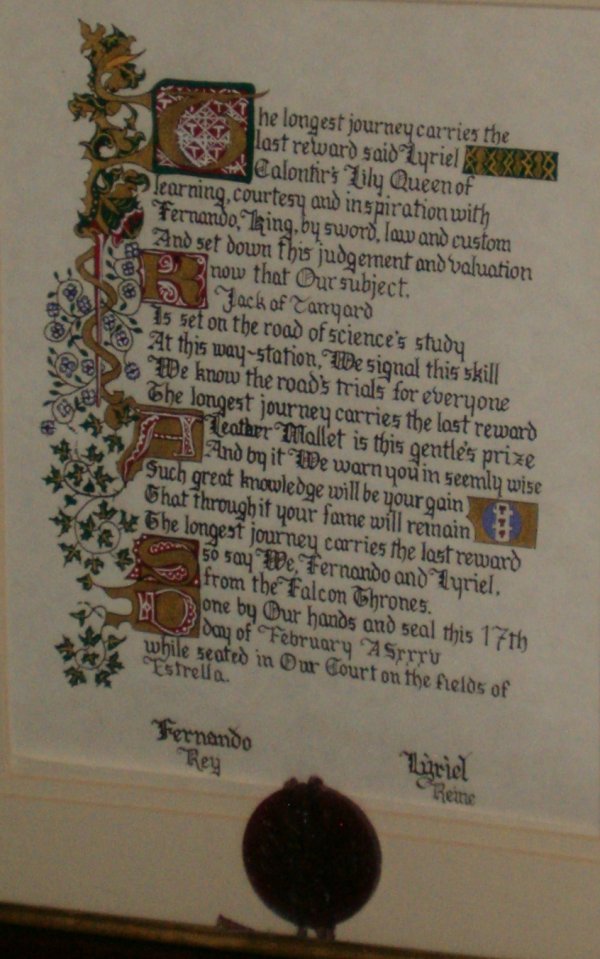 The longest journey carries the
last reward said Lyriel
Calontir's Lily Queen of
learning, courtesy and inspiration with
Fernando, King, by sword, law and custom
And set down this judgement and valuation
Know that Our subject.
Jack of Tanyard
Is set on the road of science's study
At this way-station, We signal this skill
We know the road's trials for everyone
The longest journey carries the last reward
A Leather Mallet is this gentle's prize
And by it We warn you in seemly wise
Such great knowledge will be your gain
That through it your fame will remain
The longest journey carries the last reward
So say We, Fernando and Lyriel,
from the Falcon Thrones.
Done by Our hands and seal this 17th
day of February AS xxxv
while seated in Our Court on the fields of
Estrella.
Fernando
Rey
Lyriel
Reine